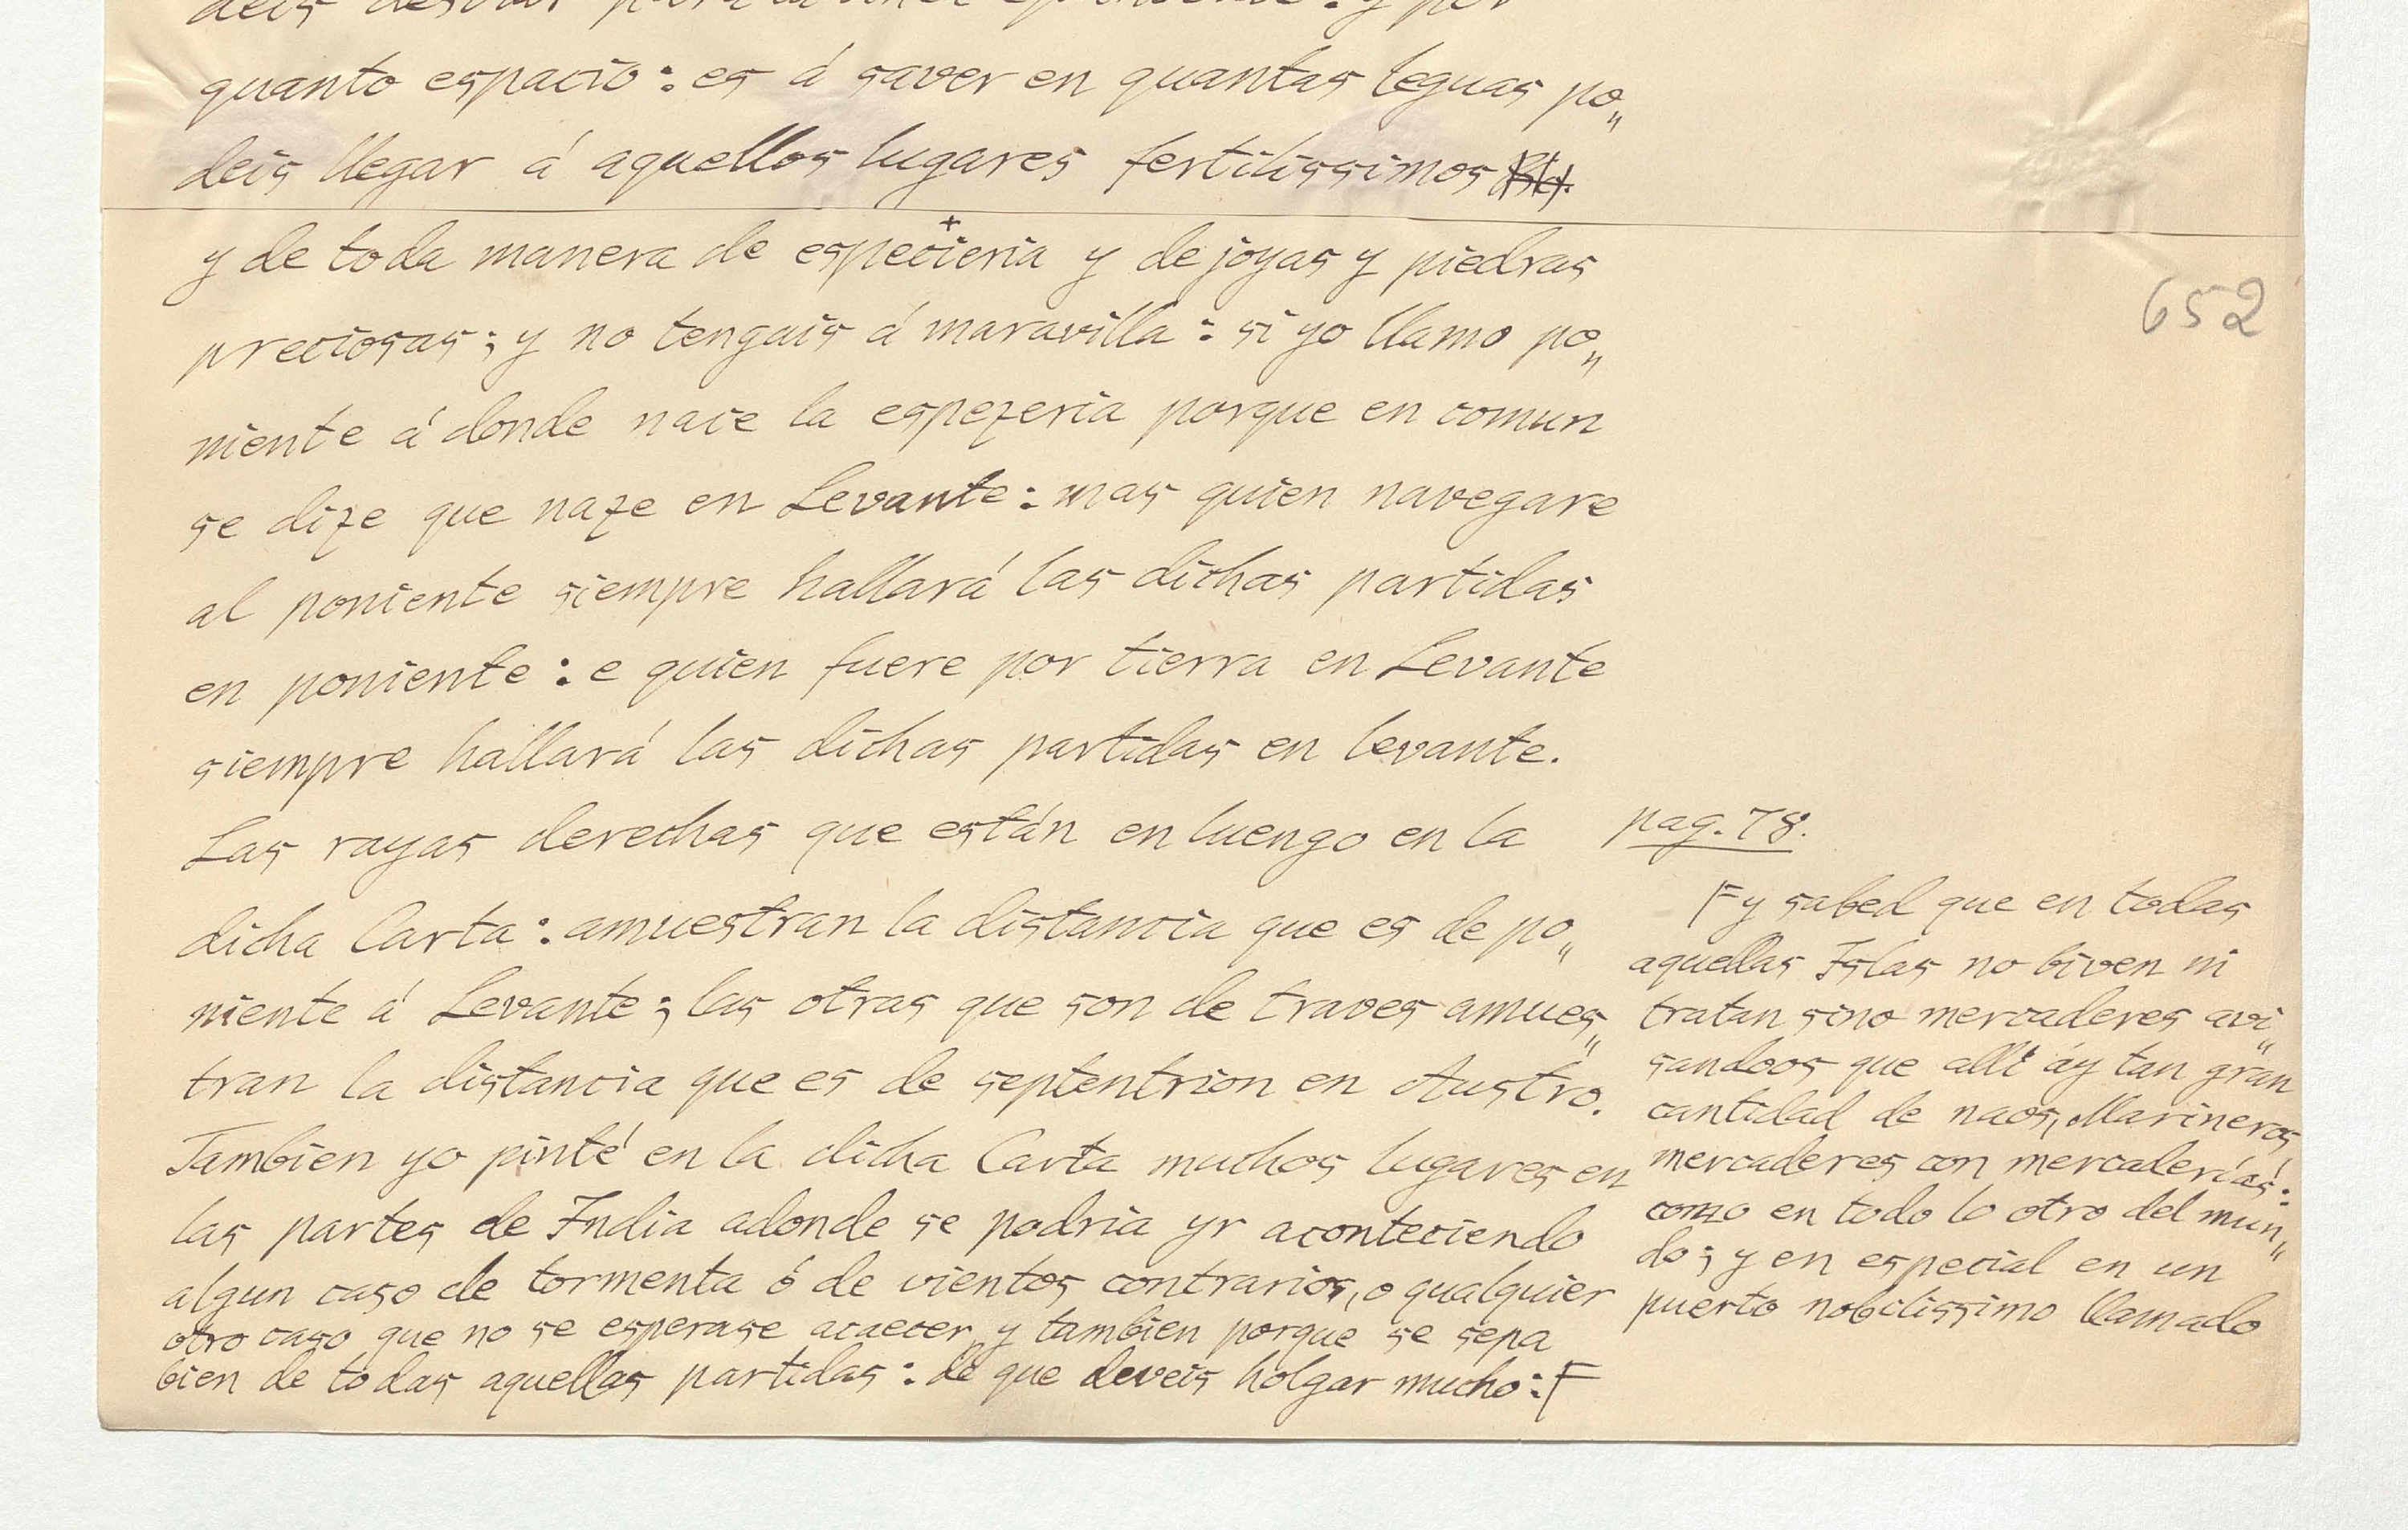 quanto espacio: es á saver en quantas leguas po„
deis llegar á aquellos lugares fertilissimos
y de toda manera de especieria y de joyas y piedras
preciosas; y no tengais á maravilla: si yo llamo po„
niente á donde nace la espezeria porque en comun
se dize que naze en Levante: mas quien navegare
al poniente siempre hallará las dichas partidas
en poniente: e quien fuere por tierra en Levante
siempre hallará las dichas partidas en levante.
Las rayas derechas que están en luengo en la
dicha Carta: amuestran la distancia que es de po„
niente á Levante; las otras que son de traves amues„
tran la distancia que es de septentrion en Austro.
Tambien yo pinté en la dicha Carta muchos lugares en
las partes de India adonde se podria yr aconteciendo
algun caso de tormenta ó de vientos contrarios, o qualquier
otro caso que no se esperase acaecer, y tambien porque se sepa
bien de todas aquellas partidas: de que deveis holgar mucho: F
652
pag. 78.
F y sabed que en todas
aquellas Islas no biven ni
tratan sino mercaderes avi„
sandoos que alli áy tan gran
cantidad de naos, Marineros,
mercaderes con mercaderías:
como en todo lo otro del mun„
do; y en especial en un
puerto nobilissimo llamado